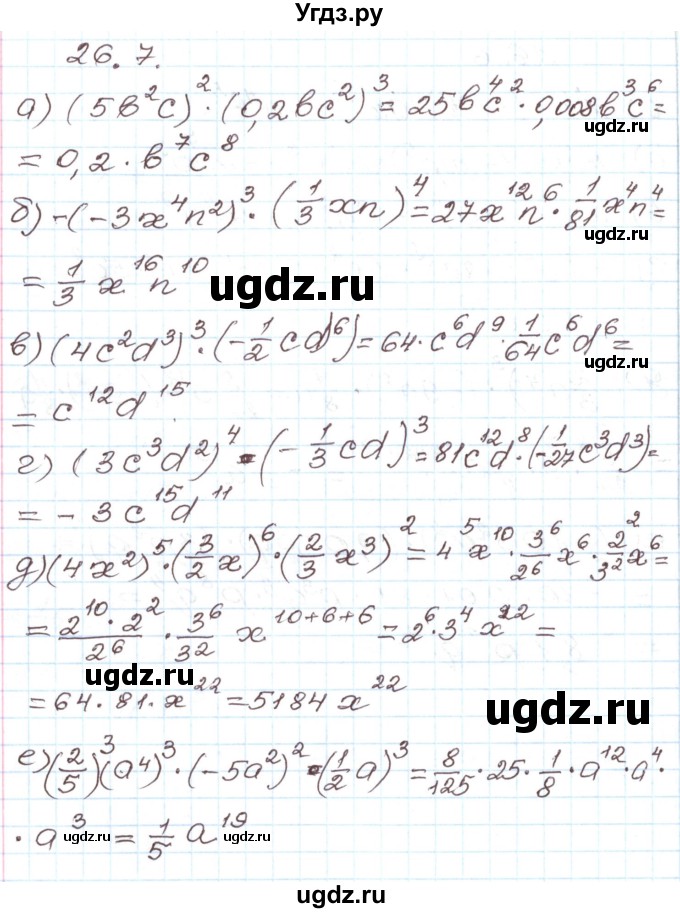 Угдз.ру
26. 7.
а) (5b²c)² · (0,2bc²)³ = 25b⁴c² · 0,008b³c⁶ =
ugdz.ru
= 0,2 · b⁷c⁸
б) -(-3x⁴n²)³ · (1/3 xn)⁴ = 27x¹²n⁶ · 1/81 x⁴n⁴ =
ugdz.ru
= 1/3 x¹⁶n¹⁰
ugdz.ru
в) (4c²d³)³ · (-1/2 cd)⁶) = 64 · c⁶d⁹ · 1/64 c⁶d⁶ =
= c¹²d¹⁵.
г) (3c³d²)⁴ · (-1/3 cd)³ = 81c¹²d⁸ · (-1/27 c³d³) =
= - 3c¹⁵d¹¹
ugdz.ru
д) (4x²)⁵ · (3/2 x)⁶ · (2/3 x³)² = 4⁵x¹⁰ · 3⁶/2⁶ x⁶ · 2²/3² x⁶ =
= 2¹⁰·2²/2⁶ · 3⁶/3² x¹⁰⁺⁶⁺⁶ = 2⁶·3⁴ x²² =
ugdz.ru
= 64 · 81 · x²² = 5184 x²²
ugdz.ru
е) (2/5)³(a⁴)³ · (-5a²)² · (1/2 a)³ = 8/125 · 25 · 1/8 · a¹² · a⁴ ·
· a³ = 1/5 a¹⁹
ugdz.ru
ugdz.ru
ugdz.ru
ugdz.ru